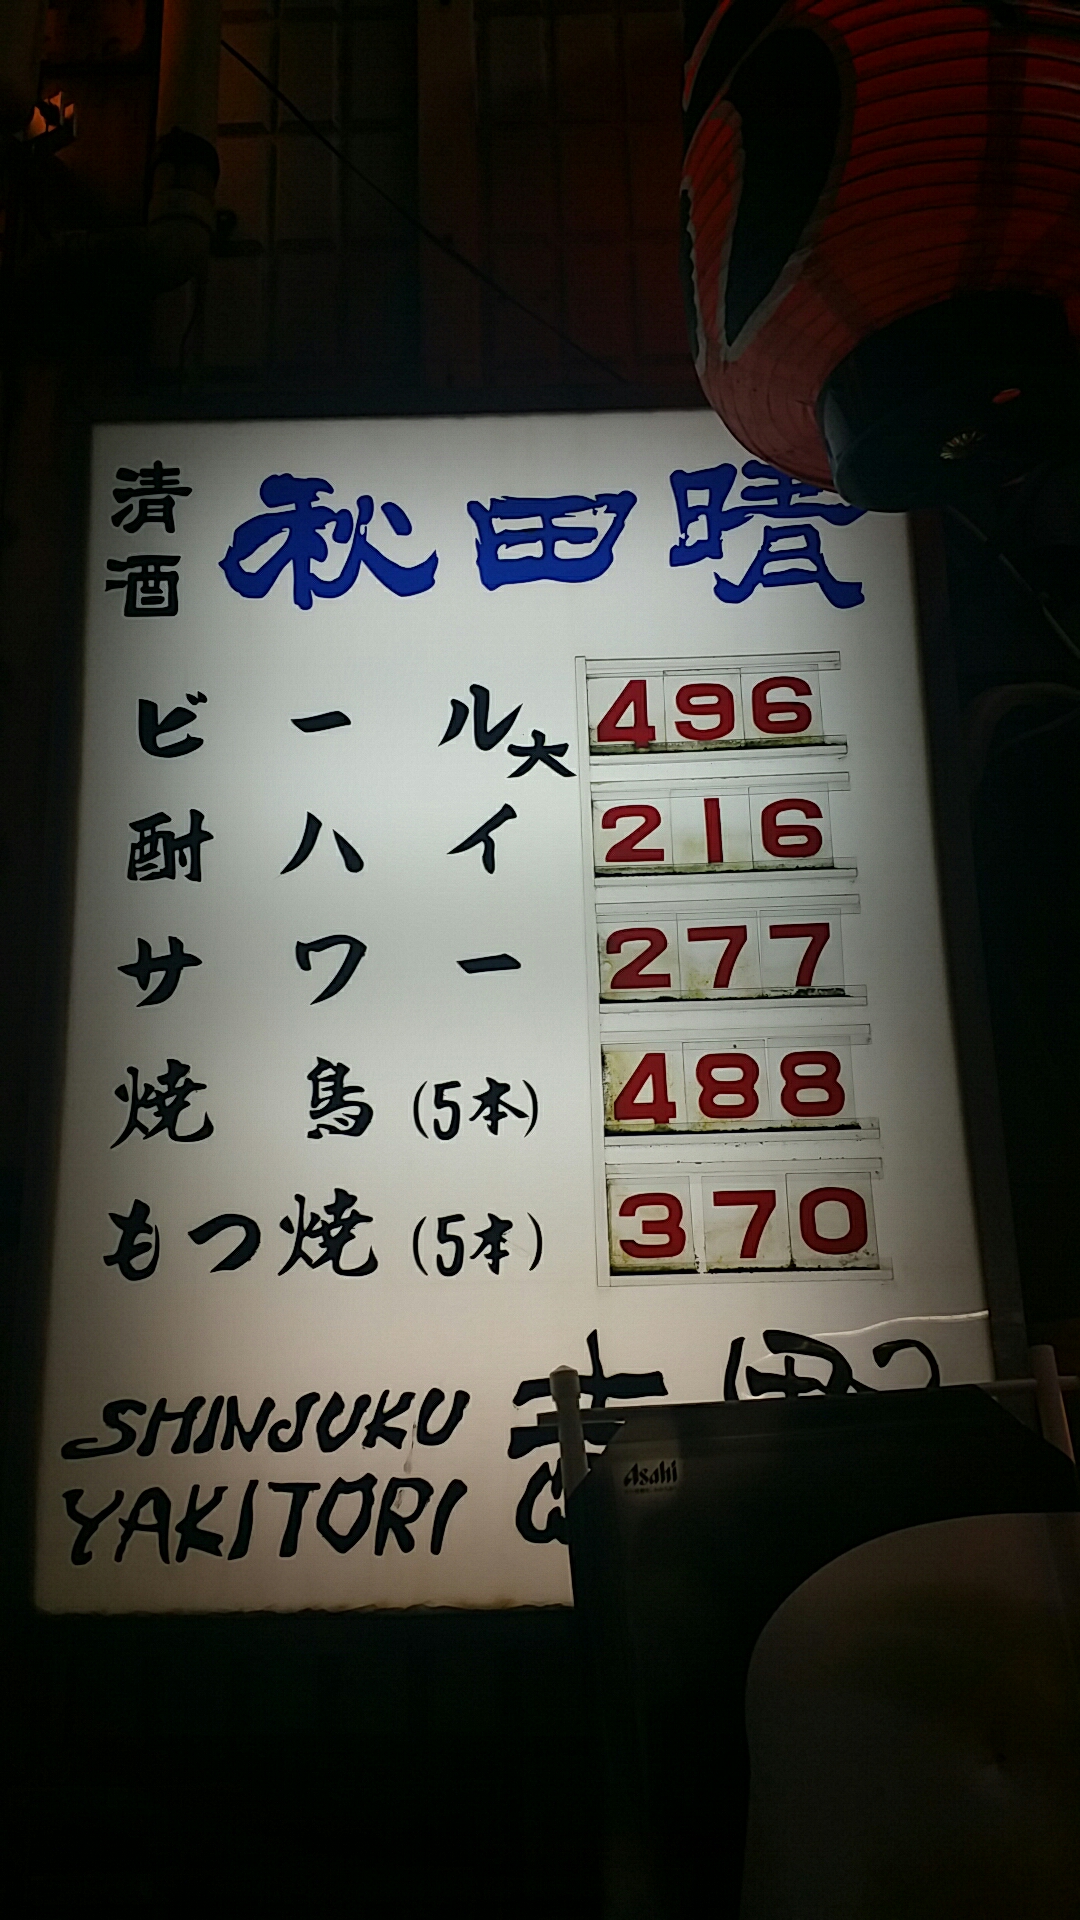 清酒 秋田晴
ビール大 496
酎ハイ 216
サワー 277
焼鳥(5本) 488
もつ焼(5本) 370
SHINJUKU
YAKITORI
Asahi